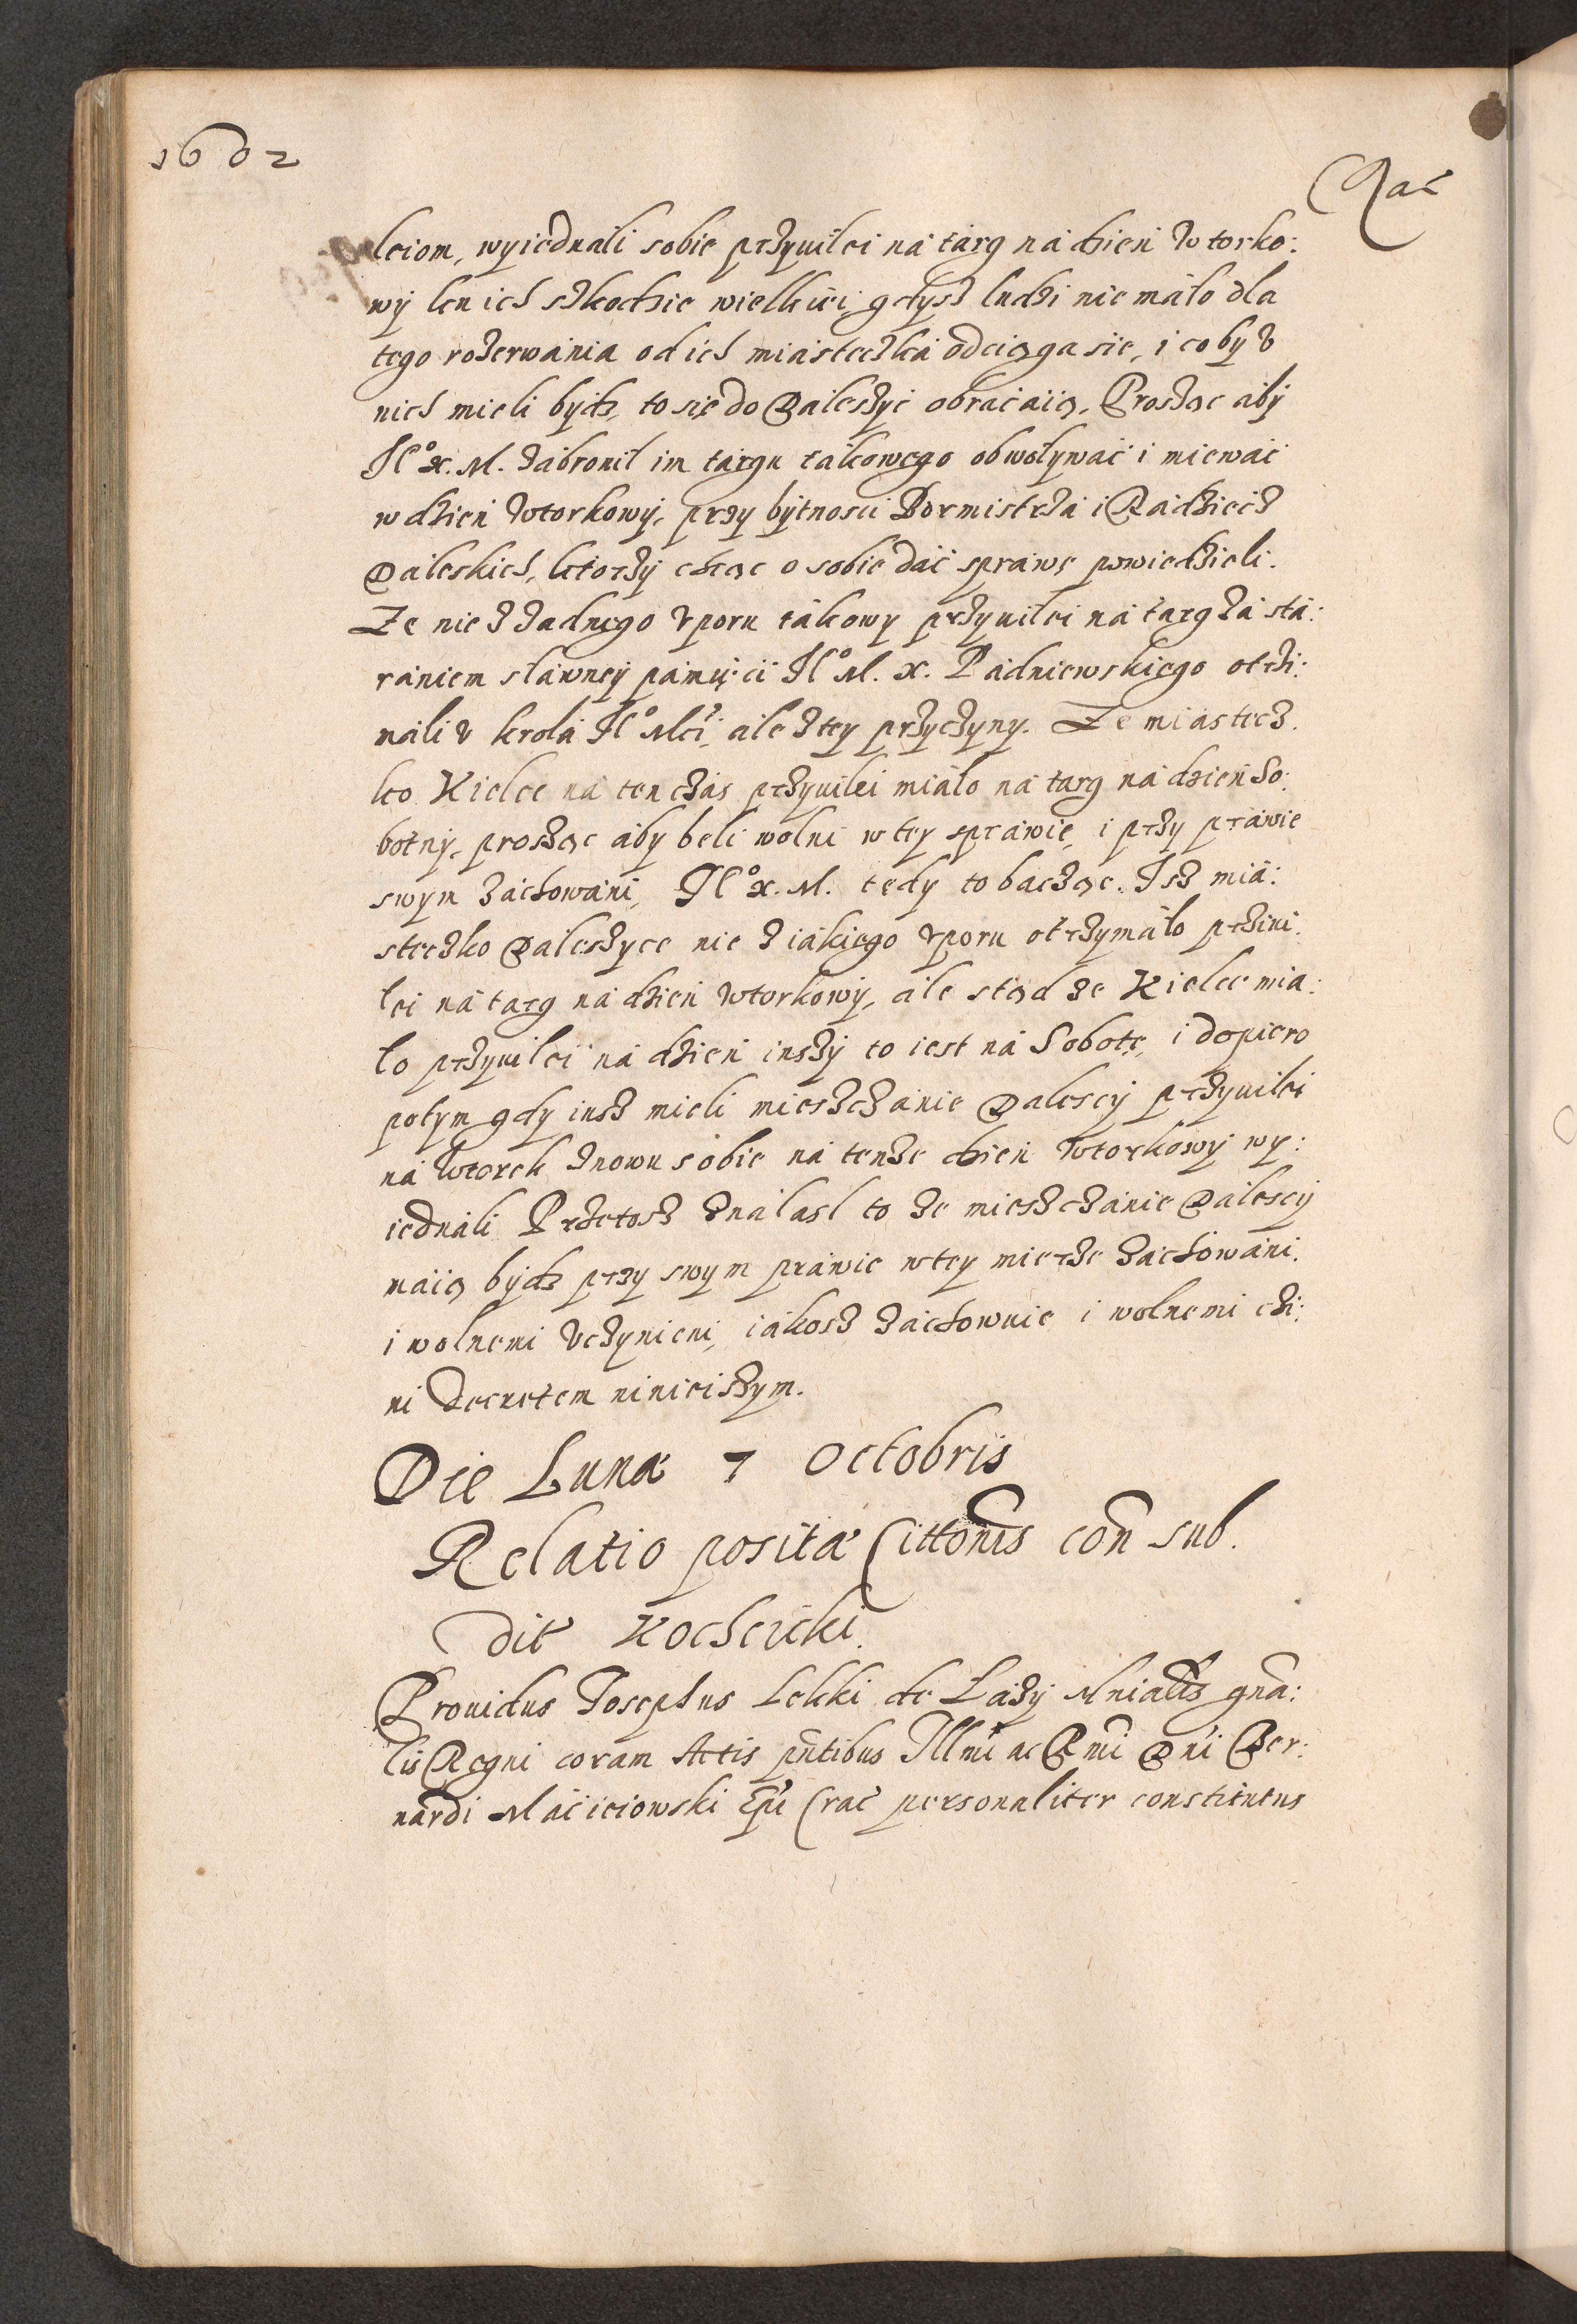 1602
Rać
leiom, wyiednali sobie przywilei ná tárg ná dzień Wtorko:
wy ku ich szkodzie wielkiei, gdysz ludzi nie máło dla
tego rozerwánia od ich miásteczká odciąga sie, i co by v
nich mieli bydz, to się do Daleszyc obracáią. Prosząc áby
Jego x. M. zábronił im tárgu tákowego obwoływáć i miewáć
w dzień Wtorkowy, przy bytnosci Bormistrzá i Rádziecz
Daleskich, ktorzy chcąc o sobie dáć sprawę powiedzieli.
Ze nie z żadnego vporu tákowy przywilei ná targ zá stá:
rániem sławney pámięci Jego M. x. Pádniewskiego otrzi:
máli v krolá Jego Mci, ále z tey przyczyny. Ze miastecz.
ko Kielce ná ten czás przywilei miáło ná targ ná dzień So:
botny, prosząc áby beli wolni w tey spráwie, i przy práwie
swym záchowáni, Jego x. M. tedy to bacząc. Isz miá:
steczko Dáleszyce nie z iákiego vporu otrzymáło przivi:
lei ná targ ná dzień Wtorkowy, ále stąd że Kielce mia:
ło przywilei ná dzień inszy to iest ná Sobotę, i dopiero
potym gdy iusz mieli mieszczánie Dalescy przywilei
ná Wtorek znowu sobie ná tenże dzień Wtorkowy wy:
iednáli Przetosz ználasł to że mieszczánie Dálescy
máią bydz przy swym práwie w tey mierze záchowáni.
i wolnemi vczynieni, iákosz záchowuie i wolnemi czi:
ni Decretem ninieiszym.
Die Lunæ 7 Octobris
Relatio positæ Cittonis con sub.
dit Kochcicki.
Prouidus Josephus Lekki de Łázy Mnialis gna:
lis Regni coram Actis pntibus Illmi ac Rmi Dni Ber:
nardi Máciciowski Epi Crac personaliter constitutus